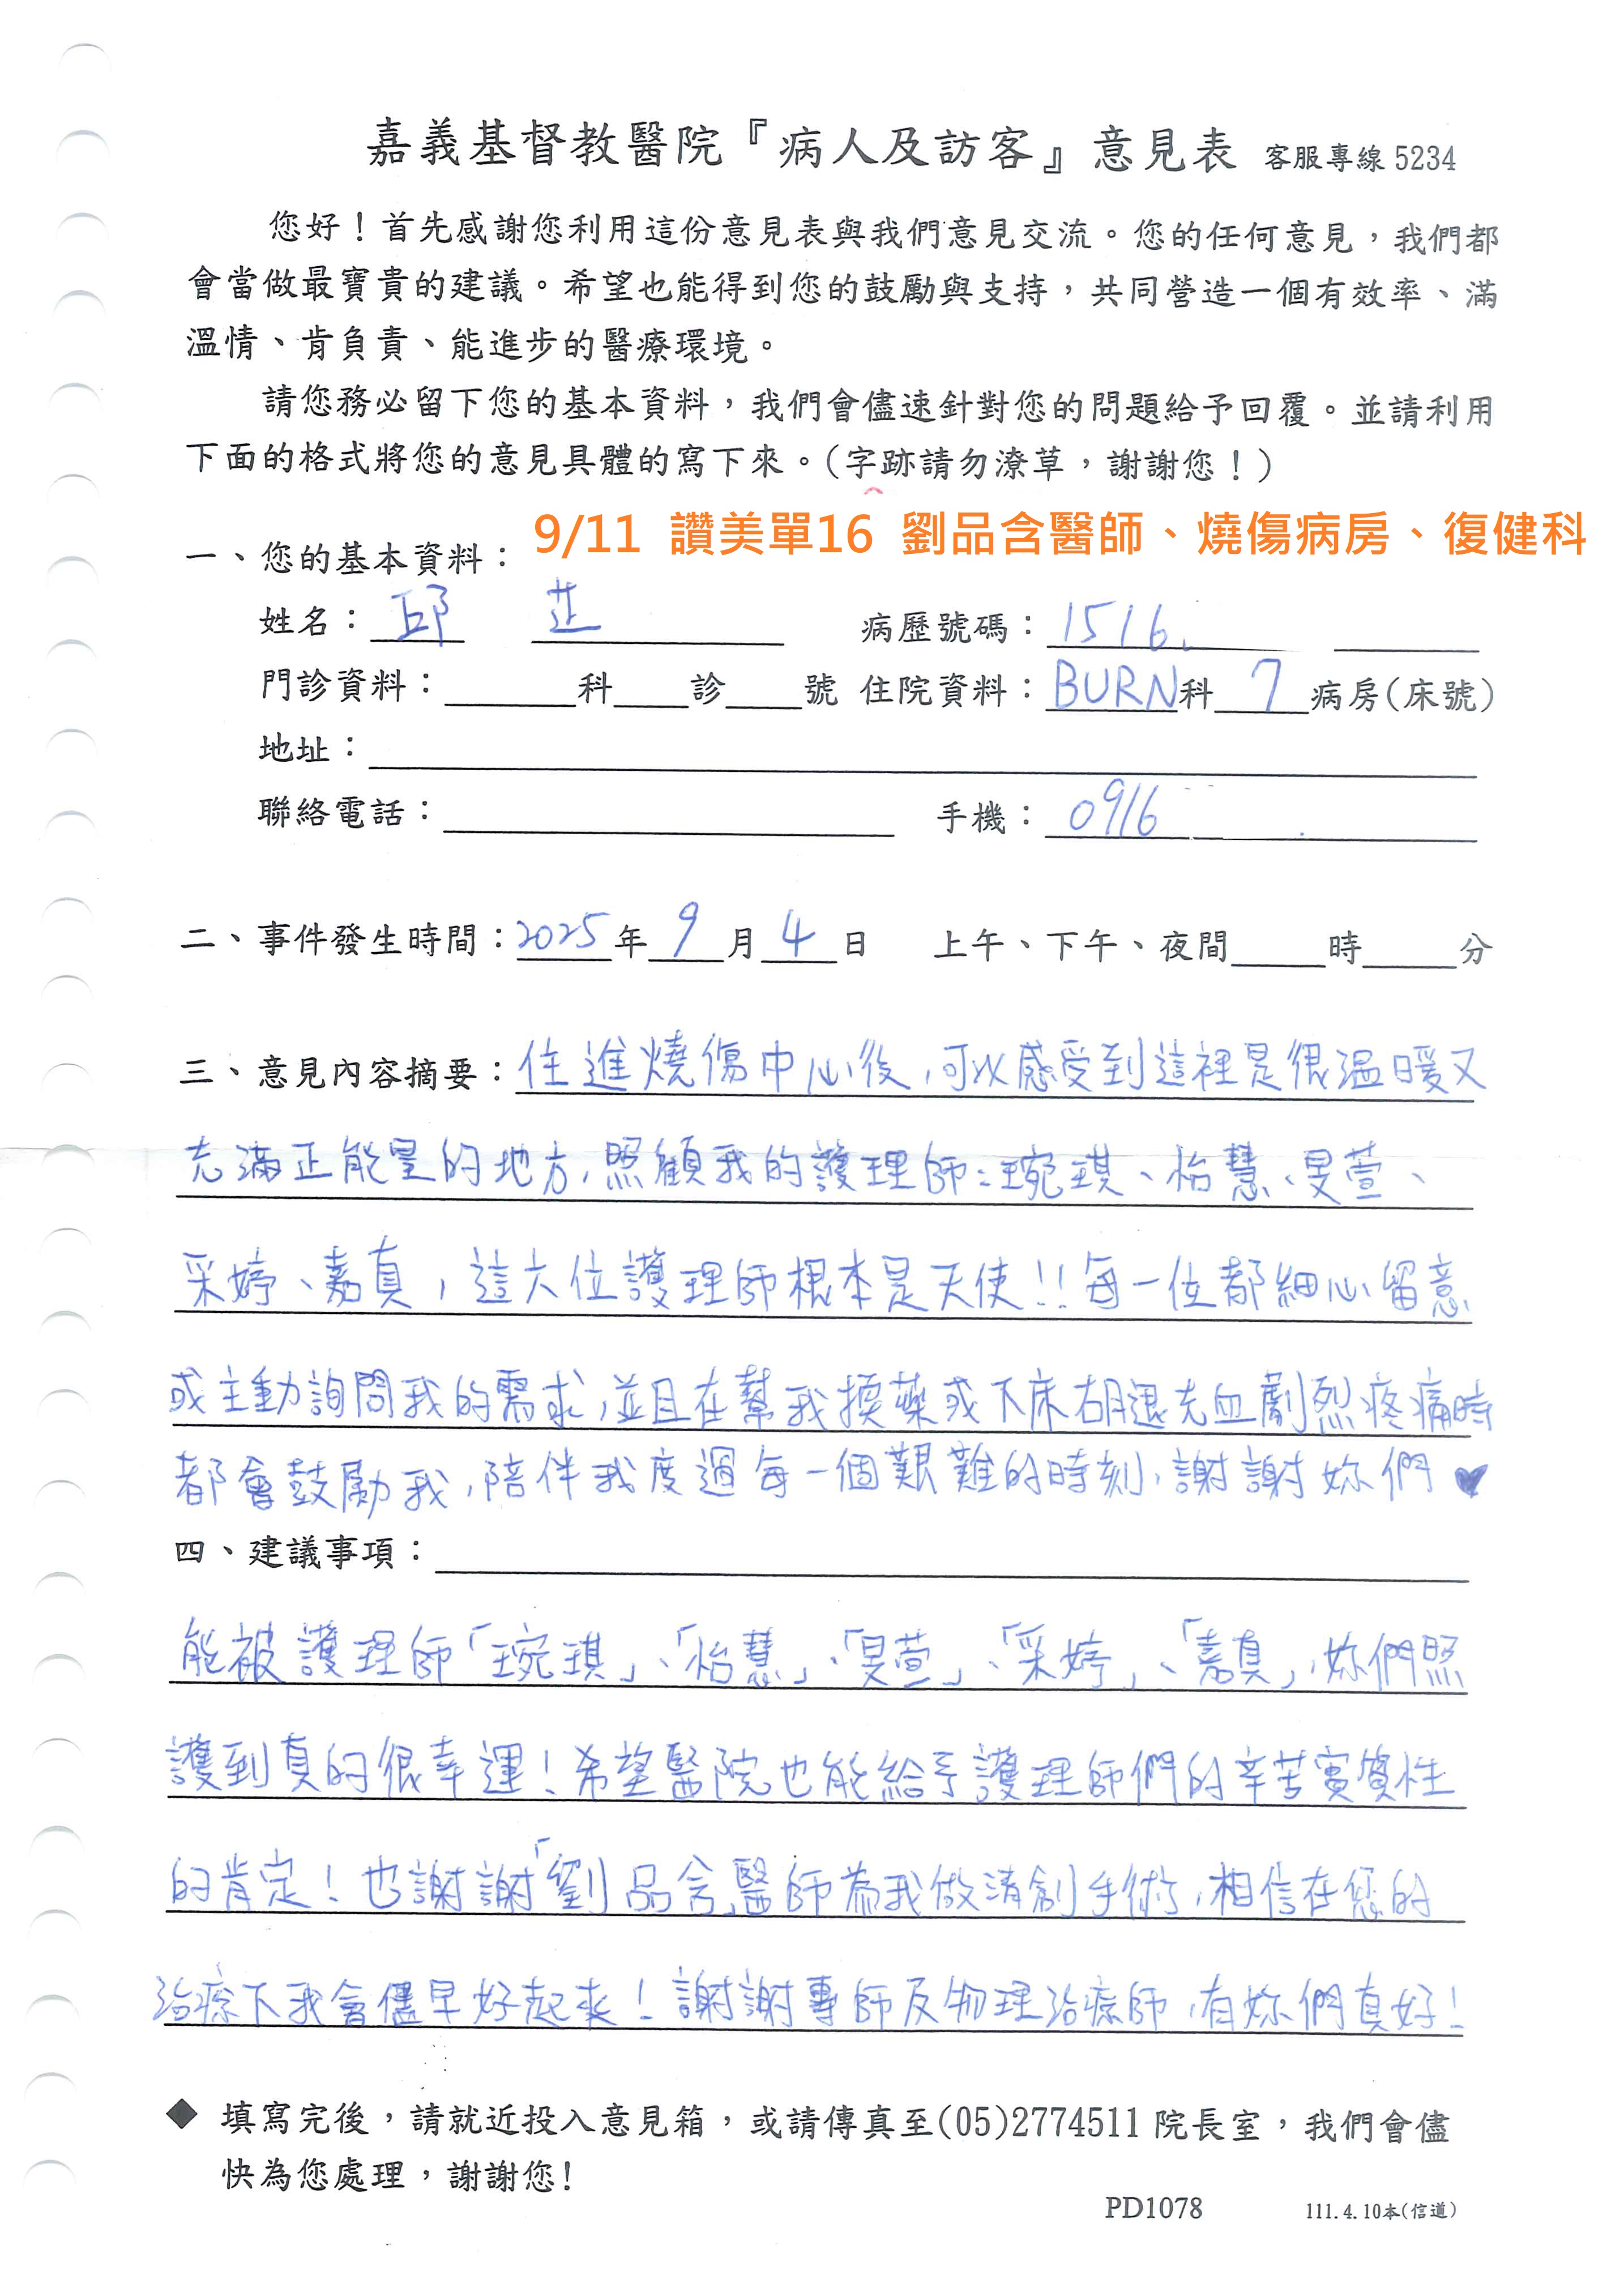 嘉義基督教醫院『病人及訪客』意見表 客服專線 5234
您好！首先感謝您利用這份意見表與我們意見交流。您的任何意見，我們都
會當做最寶貴的建議。希望也能得到您的鼓勵與支持，共同營造一個有效率、滿
溫情、肯負責、能進步的醫療環境。
請您務必留下您的基本資料，我們會儘速針對您的問題給予回覆。並請利用
下面的格式將您的意見具體的寫下來。(字跡請勿潦草，謝謝您！)
9/11 讚美單16 劉品含醫師、燒傷病房、復健科
一、您的基本資料：
姓名：邱 芷 病歷號碼：1516
門診資料：科診號 住院資料：BURN科 7 病房(床號)
地址：
聯絡電話： 手機：0916
二、事件發生時間：2025年9月4日 上午、下午、夜間 時 分
三、意見內容摘要：住進燒傷中心後，可以感受到這裡是很溫暖又
充滿正能量的地方，照顧我的護理師：琬琪、怡慧、旻萱、
采婷、嘉真，這六位護理師根本是天使!!每一位都細心留意
或主動詢問我的需求，並且在幫我換藥或下床右腿充血劇烈疼痛時
都會鼓勵我，陪伴我度過每一個艱難的時刻，謝謝妳們♥
四、建議事項：
能被護理師「琬琪」、「怡慧」、「旻萱」、「采婷」、「嘉真」，妳們照
護到真的很幸運！希望醫院也能給予護理師們的辛苦實質性
的肯定！也謝謝「劉品含」醫師為我做清創手術，相信在您的
治療下我會儘早好起來！謝謝專師及物理治療師，有妳們真好！
◆ 填寫完後，請就近投入意見箱，或請傳真至(05)2774511 院長室，我們會儘
快為您處理，謝謝您!
PD1078 111.4.10本(信道)